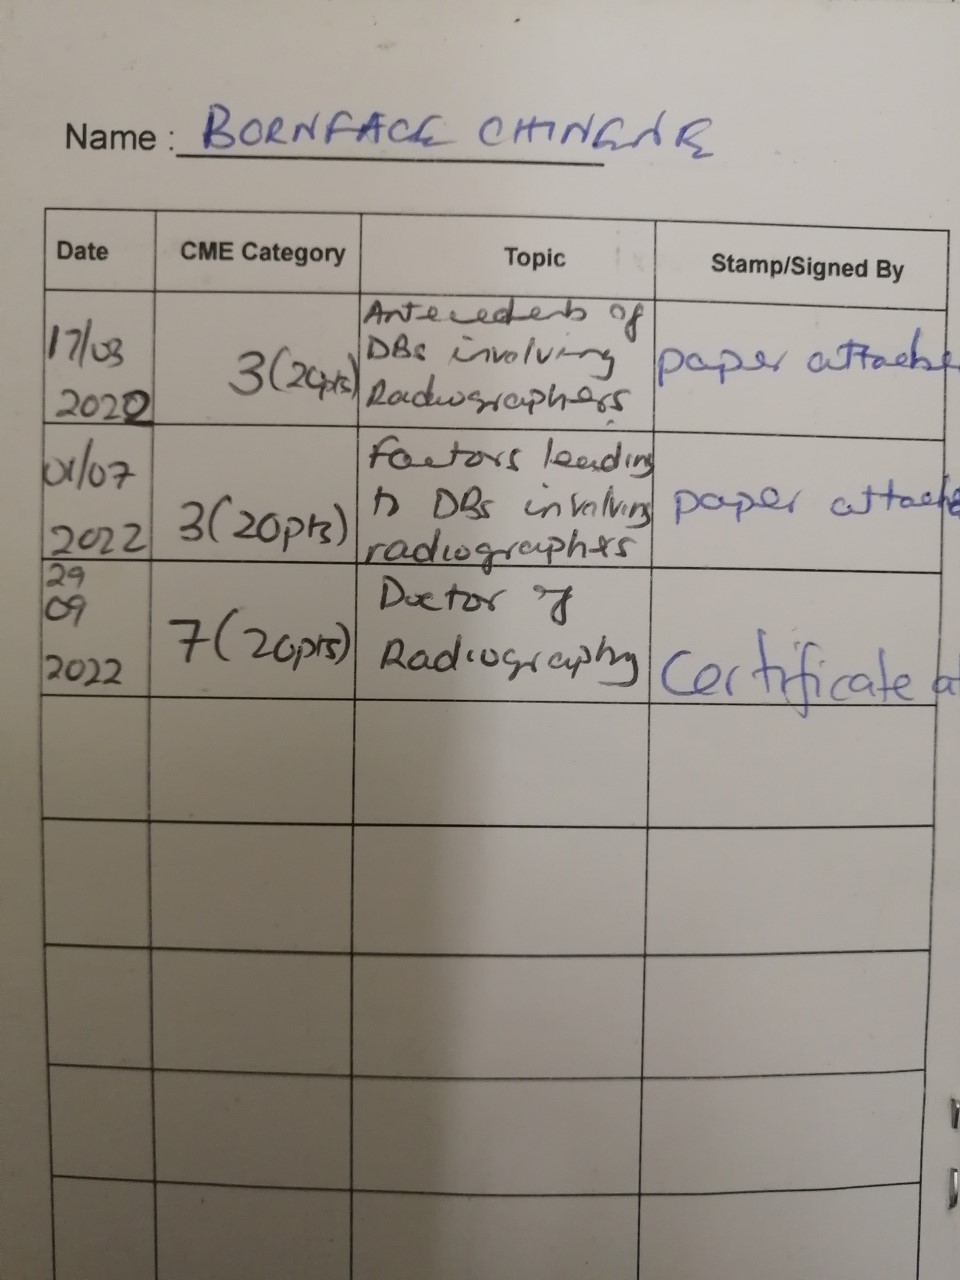 Name : BORNFACE CHINENE
Date CME Category Topic Stamp/Signed By
17/03
2020
3(20pts)
Antecedents of
DBs involving
Radiographers
paper attache
01/07
2022
3(20pts)
Factors leading
to DBs involving
radiographers
paper attache
29
09
2022
7(20pts)
Doctor of
Radiography
Certificate at